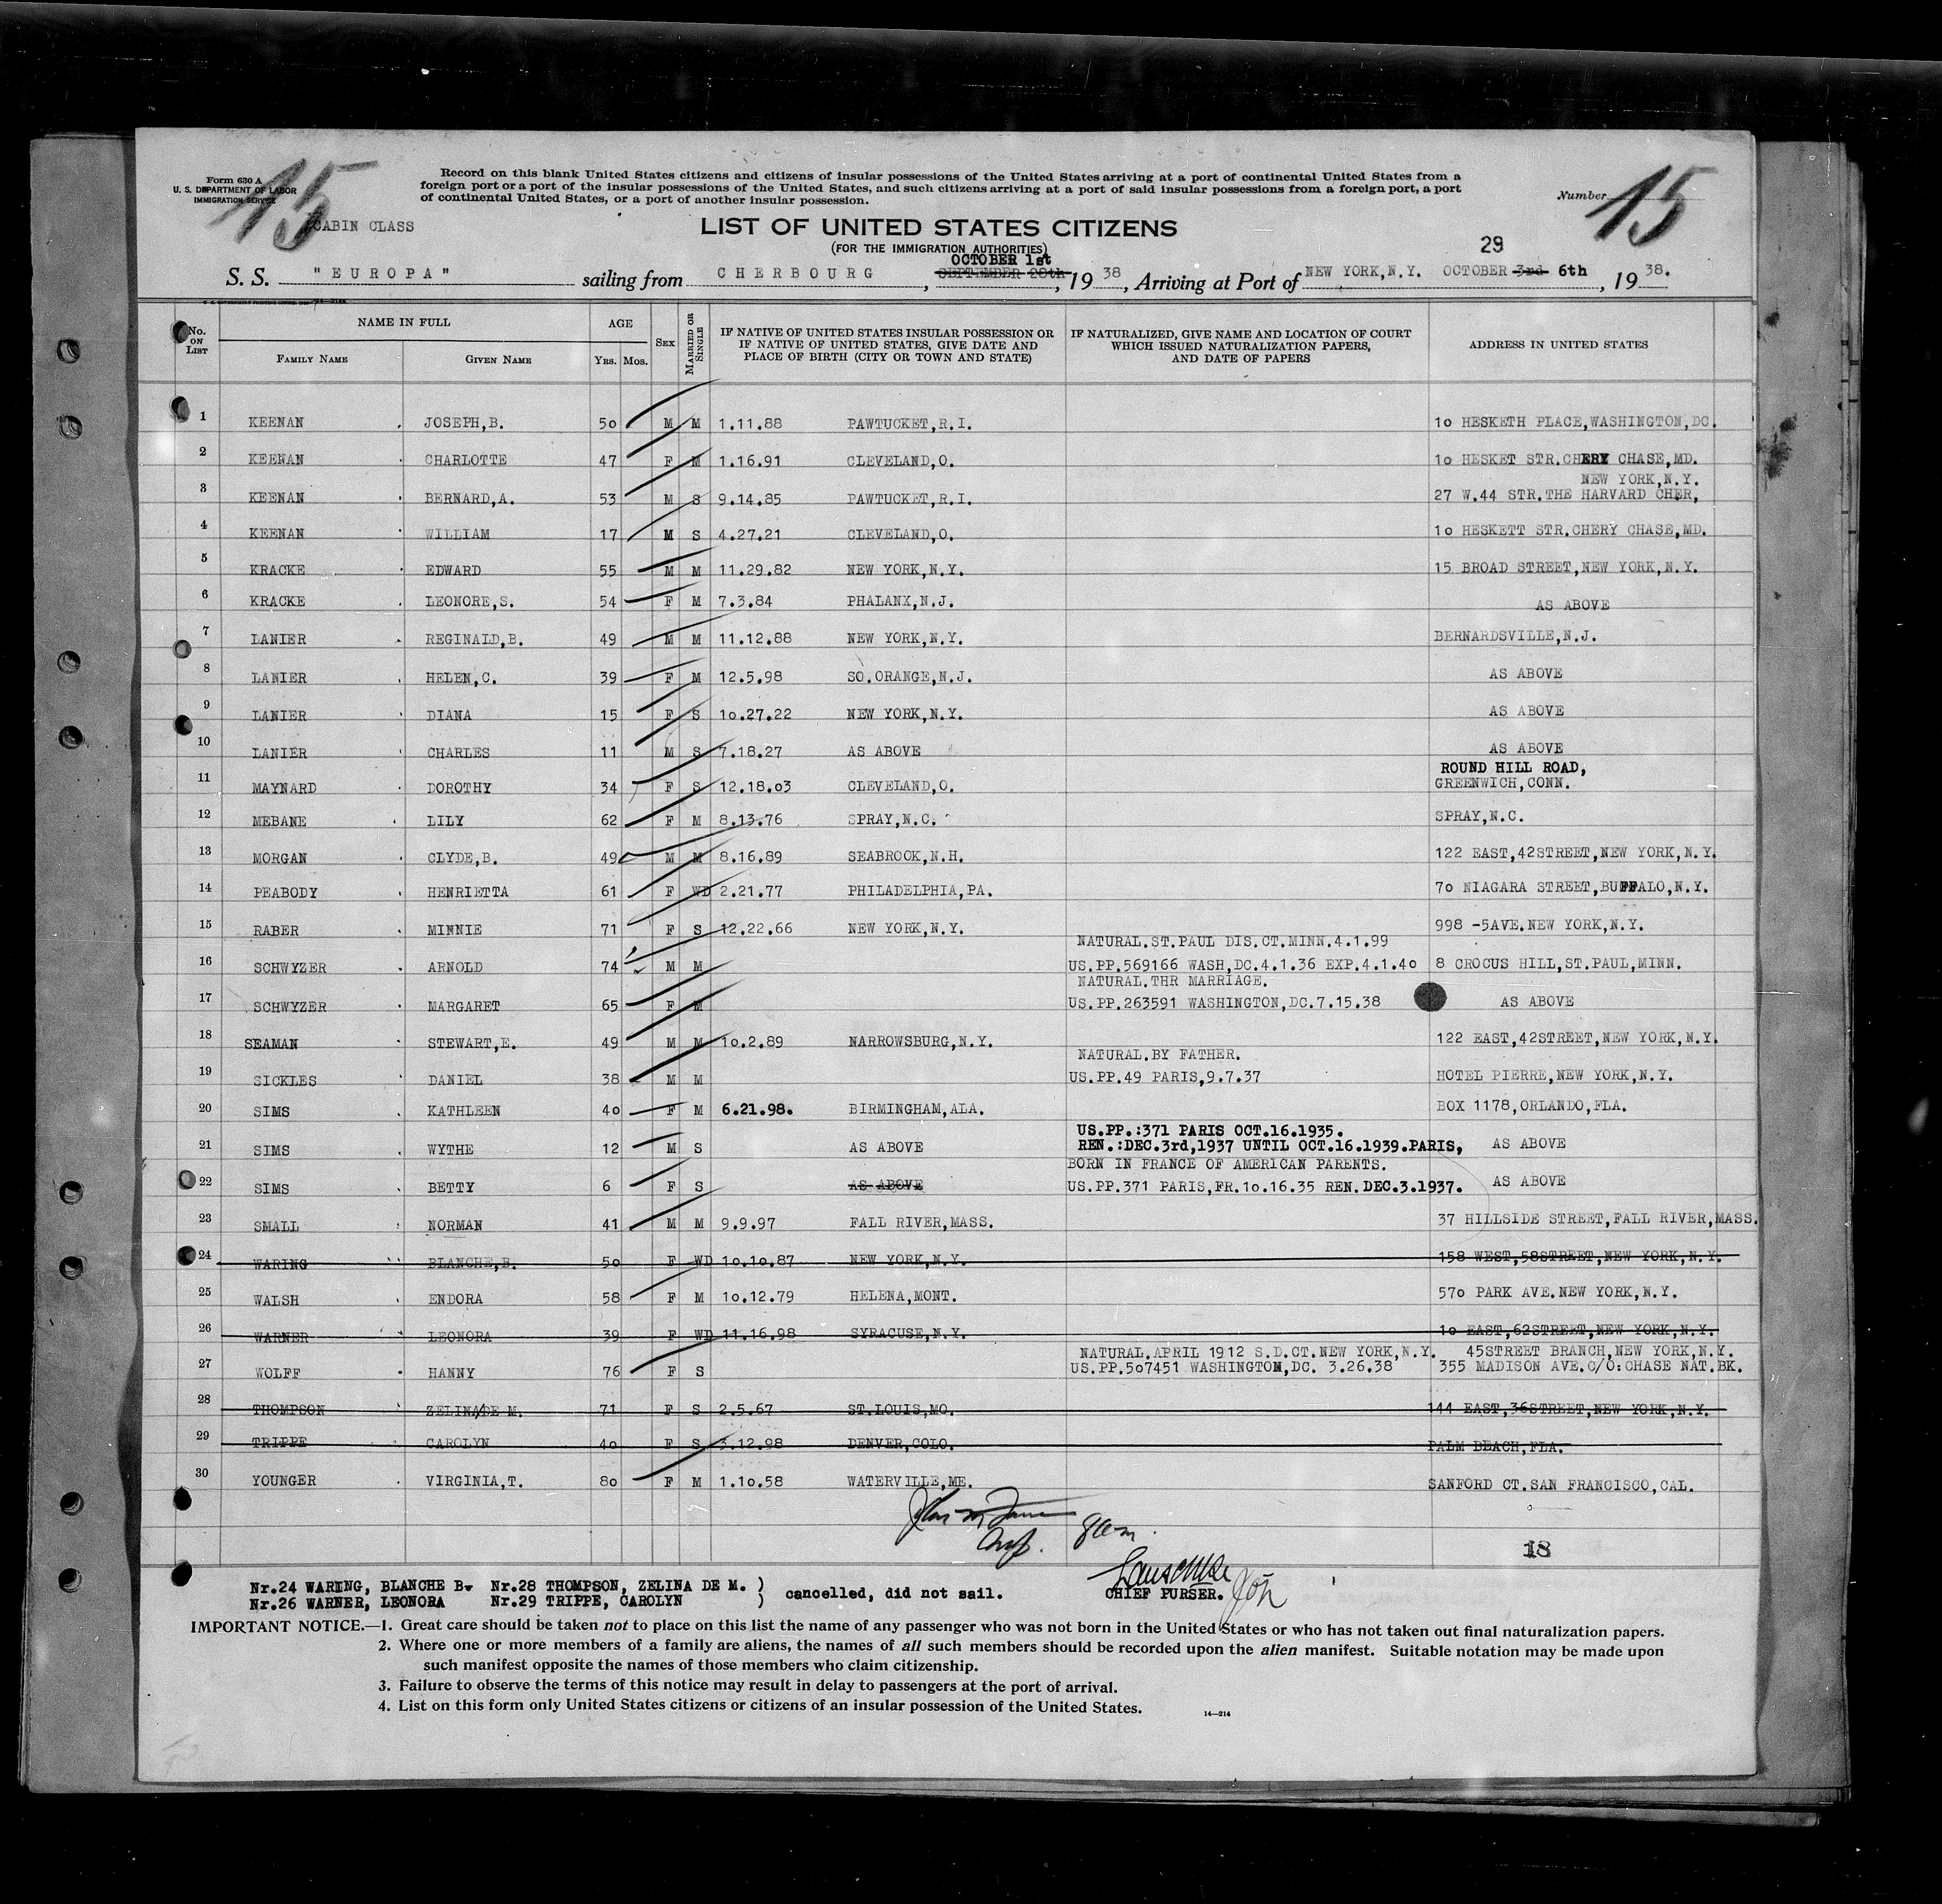 15
15
Form 630 A
U. S. DEPARTMENT OF LABOR
IMMIGRATION SERVICE
Record on this blank United States citizens and citizens of insular possessions of the United States arriving at a port of continental United States from a
foreign port or a port of the insular possessions of the United States, and such citizens arriving at a port of said insular possessions from a foreign port, a port
of continental United States, or a port of another insular possession.
Number
CABIN CLASS
LIST OF UNITED STATES CITIZENS
(FOR THE IMMIGRATION AUTHORITIES)
29
OCTOBER 1st
S. S. "EUROPA" sailing from CHERBOURG, SEPTEMBER 28th, 1938, Arriving at Port of NEW YORK,N.Y. OCTOBER 3rd 6th, 1938.
No. ON LIST NAME IN FULL AGE SEX MARRIED OR SINGLE IF NATIVE OF UNITED STATES INSULAR POSSESSION OR IF NATIVE OF UNITED STATES, GIVE DATE AND PLACE OF BIRTH (CITY OR TOWN AND STATE) IF NATURALIZED, GIVE NAME AND LOCATION OF COURT WHICH ISSUED NATURALIZATION PAPERS, AND DATE OF PAPERS ADDRESS IN UNITED STATES
FAMILY NAME GIVEN NAME YRS. MOS.
1 KEENAN JOSEPH,B. 50 M M 1.11.88 PAWTUCKET,R.I. 10 HESKETH PLACE,WASHINGTON,DC.
2 KEENAN CHARLOTTE 47 F M 1.16.91 CLEVELAND,O. 10 HESKET STR.CHERY CHASE,MD.
NEW YORK,N.Y.
3 KEENAN BERNARD,A. 53 M S 9.14.85 PAWTUCKET,R.I. 27 W.44 STR.THE HARVARD CHER,
4 KEENAN WILLIAM 17 M S 4.27.21 CLEVELAND,O. 10 HESKETT STR.CHERY CHASE,MD.
5 KRACKE EDWARD 55 M M 11.29.82 NEW YORK,N.Y. 15 BROAD STREET,NEW YORK,N.Y.
6 KRACKE LEONORE,S. 54 F M 7.3.84 PHALANX,N.J. AS ABOVE
7 LANIER REGINALD,B. 49 M M 11.12.88 NEW YORK,N.Y. BERNARDSVILLE,N.J.
8 LANIER HELEN,C. 39 F M 12.5.98 SO.ORANGE,N.J. AS ABOVE
9 LANIER DIANA 15 F S 10.27.22 NEW YORK,N.Y. AS ABOVE
10 LANIER CHARLES 11 M S 7.18.27 AS ABOVE AS ABOVE
ROUND HILL ROAD,
11 MAYNARD DOROTHY 34 F S 12.18.03 CLEVELAND,O. GREENWICH,CONN.
12 MEBANE LILY 62 F M 8.13.76 SPRAY,N.C. SPRAY,N.C.
13 MORGAN CLYDE,B. 49 M M 8.16.89 SEABROOK,N.H. 122 EAST,42STREET,NEW YORK,N.Y.
14 PEABODY HENRIETTA 61 F WD 2.21.77 PHILADELPHIA,PA. 70 NIAGARA STREET,BUFFALO,N.Y.
15 RABER MINNIE 71 F S 12.22.66 NEW YORK,N.Y. 998 -5AVE.NEW YORK,N.Y.
NATURAL.ST.PAUL DIS.CT.MINN.4.1.99
16 SCHWYZER ARNOLD 74 M M US.PP.569166 WASH,DC.4.1.36 EXP.4.1.40 8 CROCUS HILL,ST.PAUL,MINN.
NATURAL.THR MARRIAGE.
17 SCHWYZER MARGARET 65 F M US.PP.263591 WASHINGTON,DC.7.15.38 AS ABOVE
18 SEAMAN STEWART,E. 49 M M 10.2.89 NARROWSBURG,N.Y. 122 EAST,42STREET,NEW YORK,N.Y.
NATURAL.BY FATHER.
19 SICKLES DANIEL 38 M M US.PP.49 PARIS,9.7.37 HOTEL PIERRE,NEW YORK,N.Y.
20 SIMS KATHLEEN 40 F M 6.21.98. BIRMINGHAM,ALA. BOX 1178,ORLANDO,FLA.
US.PP.:371 PARIS OCT.16.1935.
21 SIMS WYTHE 12 M S AS ABOVE REN.:DEC.3rd,1937 UNTIL OCT.16.1939.PARIS, AS ABOVE
BORN IN FRANCE OF AMERICAN PARENTS.
22 SIMS BETTY 6 F S AS ABOVE US.PP.371 PARIS,FR.10.16.35 REN.DEC.3.1937. AS ABOVE
23 SMALL NORMAN 41 M M 9.9.97 FALL RIVER,MASS. 37 HILLSIDE STREET,FALL RIVER,MASS.
24 WARING BLANCHE,B. 50 F WD 10.10.87 NEW YORK,N.Y. 158 WEST,58STREET,NEW YORK,N.Y.
25 WALSH ENDORA 58 F M 10.12.79 HELENA,MONT. 570 PARK AVE.NEW YORK,N.Y.
26 WARNER LEONORA 39 F WD 11.16.98 SYRACUSE,N.Y. 10 EAST,62STREET,NEW YORK,N.Y.
NATURAL.APRIL 1912 S.D.CT.NEW YORK,N.Y. 45STREET BRANCH,NEW YORK,N.Y.
27 WOLFF HANNY 76 F S US.PP.507451 WASHINGTON,DC. 3.26.38 355 MADISON AVE.C/O:CHASE NAT.BK.
28 THOMPSON ZELINA/DE M. 71 F S 2.5.67 ST.LOUIS,MO. 144 EAST,36STREET,NEW YORK,N.Y.
29 TRIPPE CAROLYN 40 F S 3.12.98 DENVER,COLO. PALM BEACH,FLA.
30 YOUNGER VIRGINIA,T. 80 F M 1.10.58 WATERVILLE,ME. SANFORD CT.SAN FRANCISCO,CAL.
18
Nr.24 WARING, BLANCHE B. Nr.28 THOMPSON, ZELINA DE M. )
Nr.26 WARNER, LEONORA Nr.29 TRIPPE, CAROLYN ) cancelled, did not sail.
CHIEF PURSER.
IMPORTANT NOTICE.—1. Great care should be taken not to place on this list the name of any passenger who was not born in the United States or who has not taken out final naturalization papers.
2. Where one or more members of a family are aliens, the names of all such members should be recorded upon the alien manifest. Suitable notation may be made upon
such manifest opposite the names of those members who claim citizenship.
3. Failure to observe the terms of this notice may result in delay to passengers at the port of arrival.
4. List on this form only United States citizens or citizens of an insular possession of the United States.
14—214